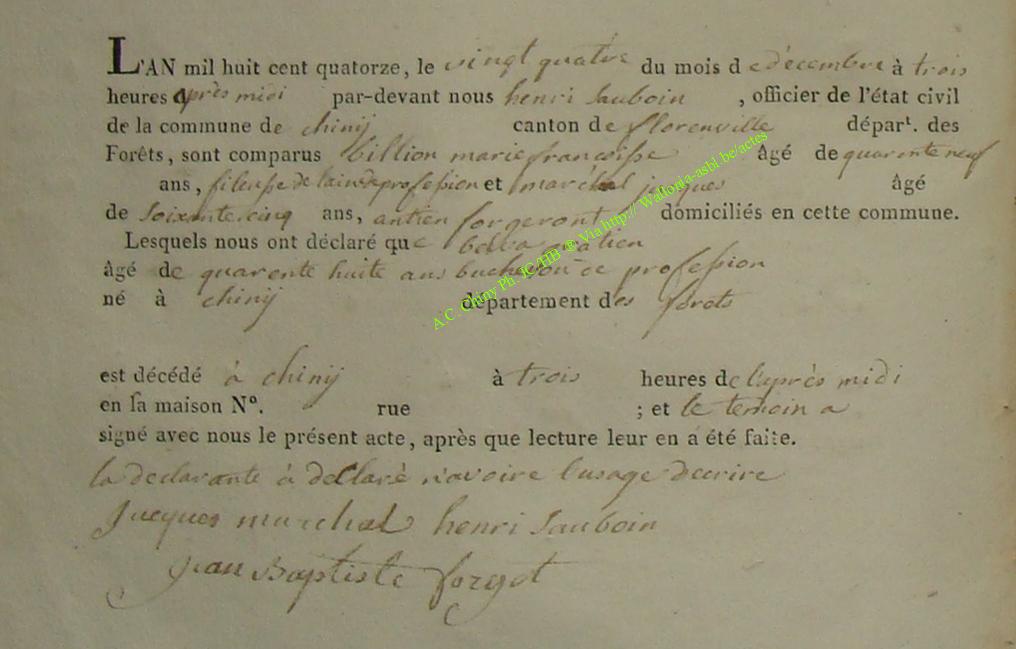 L'AN mil huit cent quatorze, le vingt quatre du mois d e décembre à trois
heures après midi par-devant nous henri Sauboin , officier de l'état civil
de la commune de chinij canton de florenville dépar<sup>t</sup>. des
Forêts, sont comparus billion marie françoisse âgé de quarente neuf
ans, fileusse de laine de profession et maréchal jacques âgé
de soixante cinq ans, antien forgeront domiciliés en cette commune.
Lesquels nous ont déclaré que gratien
âgé de quarente huite ans bucheron de profession
né à chinij département des forêts
est décédé à chinij à trois heures de l'après midi
en sa maison N°. rue ; et le temoin a
signé avec nous le présent acte, après que lecture leur en a été faite.
la declarante à déclaré n'avoire l'usage decrire
Jacques marchal henri Sauboin
jean Baptiste forget
A.C. Chiny Ph. JC/HB @ Via http:// Wallonia-asbl.be/actes